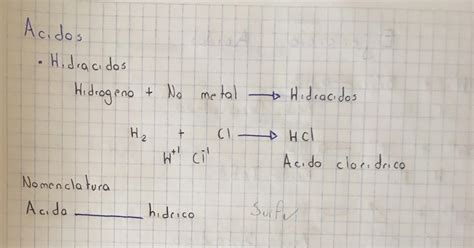 Acidos
• Hidracidos
Hidrogeno + No metal → Hidracidos
H₂ + Cl → HCl
H⁺¹ Cl⁻¹ Acido cloridrico
Nomenclatura
Acido ________ hidrico